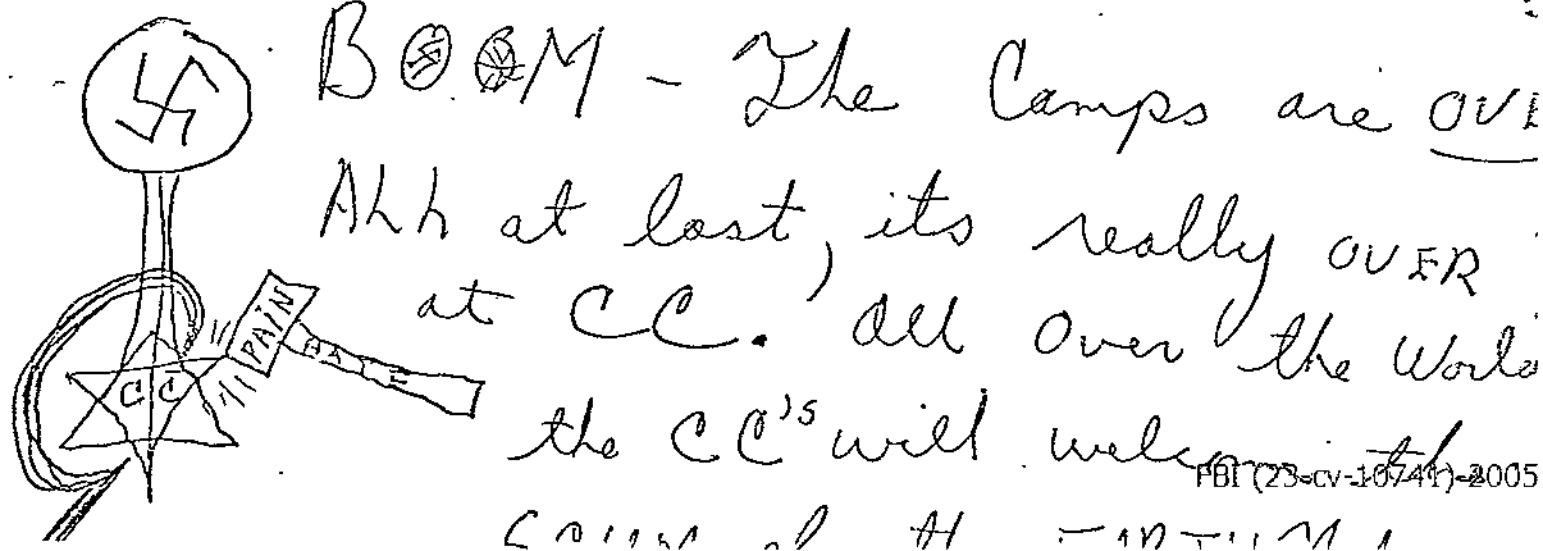 BOOM - The Camps are OVE
Ahh at last, its really OVER
at CC. All over the World
the CC's will welcom the
PAIN
CC
FBI (23-cv-10741)-2005